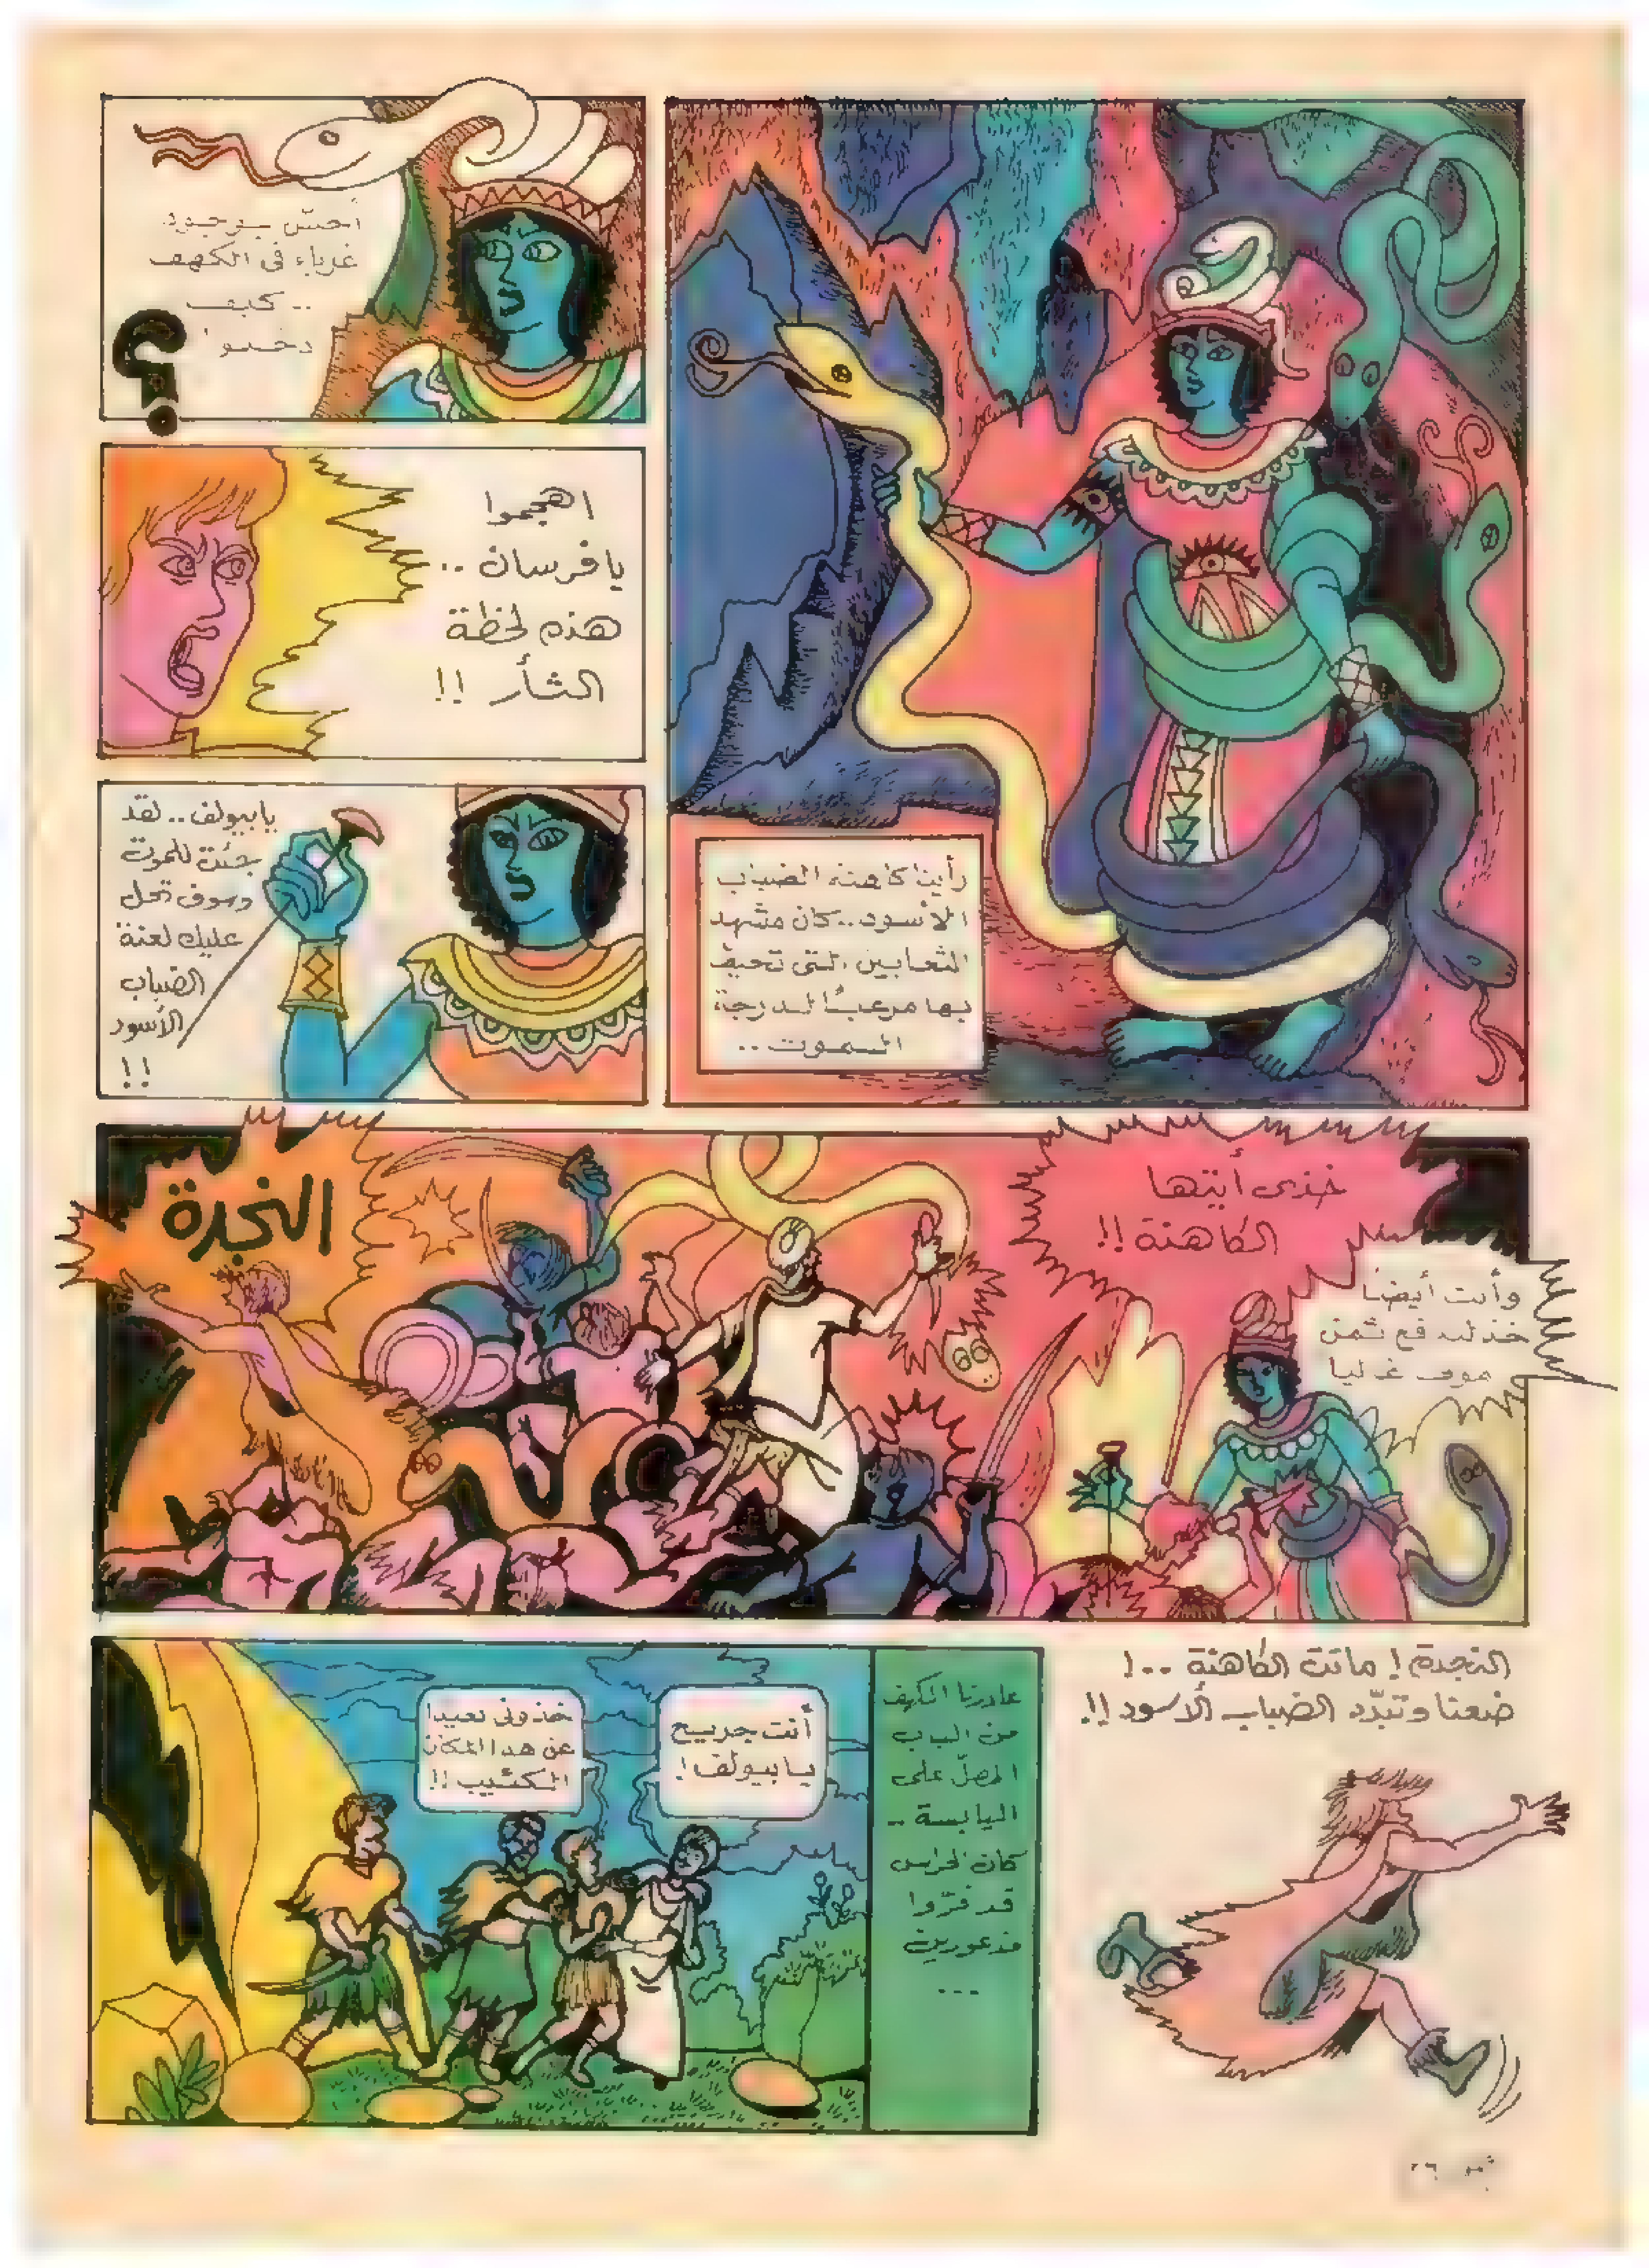 رأينا كاهنة الضباب
الأسود.. كان مشهد
الثعابين التى تحيط
بها مرعبًا لدرجة
الموت..
أحسّ بوجود
غرباء فى الكهف
.. كيف
دخلوا
؟
اهجموا
يا فرسان ..
هذه لحظة
الثأر !!
يا بيولف.. لقد
جئت للموت
وسوف تحل
عليك لعنة
الضباب
الأسود
!!
خذى أيتها
الكاهنة !!
وأنت أيضا
خذ لتدفع ثمن
غاليا
النجدة
النجدة ! ماتت الكاهنة ..!
ضعنا وتبدّد الضباب الأسود !!
غادرنا الكهف
من الباب
المطلّ على
اليابسة ..
كان الحراس
قد فرّوا
مذعورين
...
أنت جريح
يا بيولف !
خذونى بعيدا
عن هذا المكان
الكئيب !!
٢٦